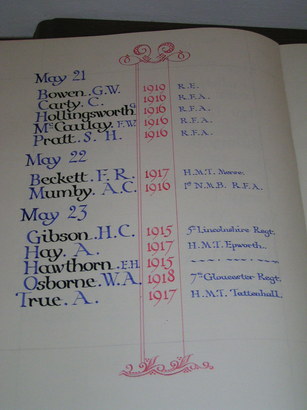 May 21
Bowen. G.W. 1919 R.E.
Carty. C. 1916 R.F.A.
Hollingsworth. G. 1916 R.F.A.
McCauley. F.W. 1916 R.F.A.
Pratt. S. H. 1916 R.F.A.
May 22
Beckett. F. R. 1917 H.M.T.
Mumby. A.C. 1916 R.F.A.
May 23
Gibson. H.C. 1915 5th Lincolnshire Regt.
Hay. A. 1917 H.M.T. Epworth.
Hawthorn. E.H. 1915
Osborne. W.A. 1918 7th Gloucester Regt.
True. A. 1917 H.M.T. Tattenhall.